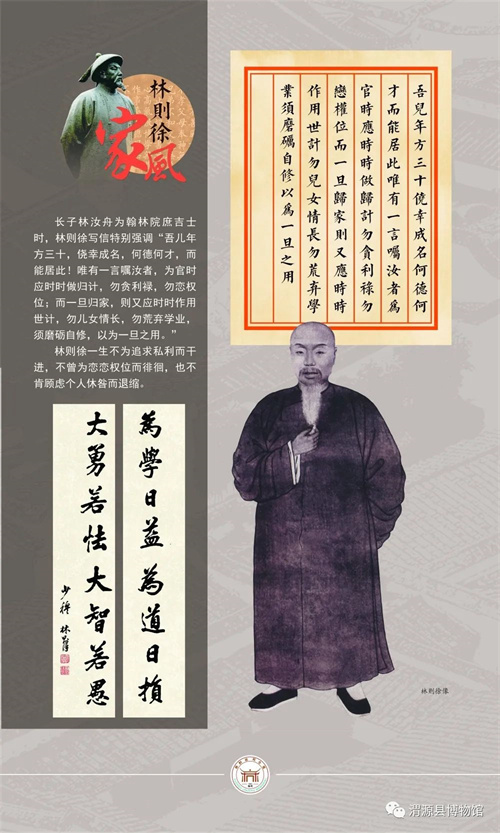 林則徐
家風
长子林汝舟为翰林院庶吉士
时，林则徐写信特别强调“吾儿年
方三十，侥幸成名，何德何才，而
能居此！唯有一言嘱汝者，为官时
应时时做归计，勿贪利禄，勿恋权
位；而一旦归家，则又应时时作用
世计，勿儿女情长，勿荒弃学业，
须磨砺自修，以为一旦之用。”
林则徐一生不为追求私利而干
进，不曾为恋恋权位而徘徊，也不
肯顾虑个人休咎而退缩。
吾兒年方三十僥幸成名何德何
才而能居此唯有一言囑汝者為
官時應時時做歸計勿貪利祿勿
戀權位而一旦歸家則又應時時
作用世計勿兒女情長勿荒弃學
業須磨礪自修以為一旦之用
為學日益為道日損
大勇若怯大智若愚
少穆 林則徐
林則徐像
渭源县博物馆